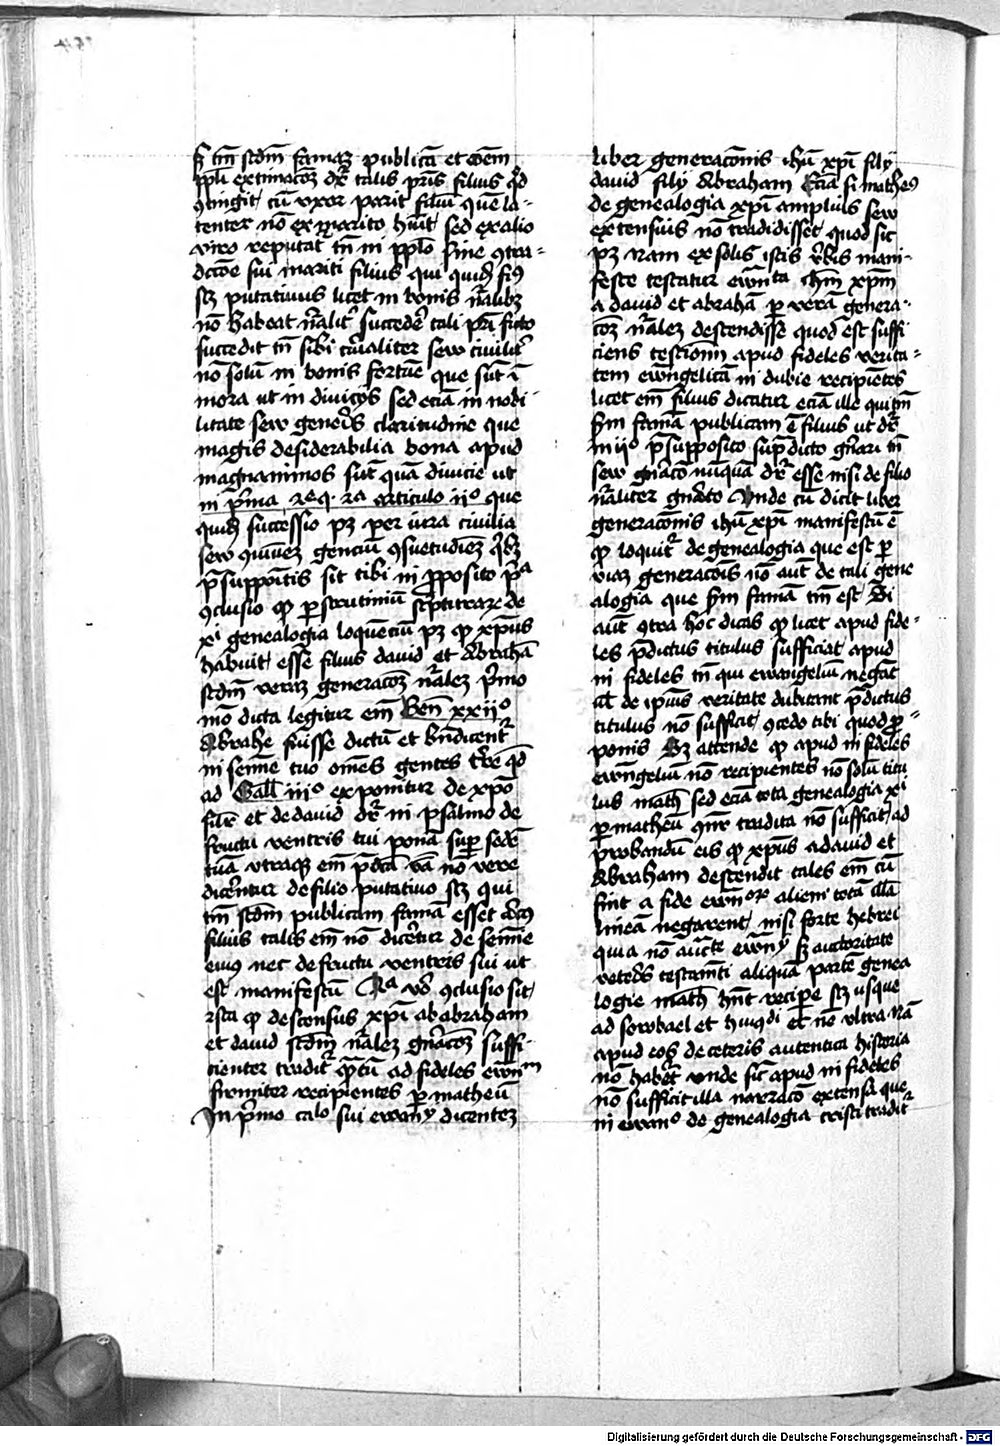 ẜ tm̄ scdm̄ famaꝫ publicā et co͞em
ppl̄i extimacōꝫ dr̄ talis pr̄is filius qd̄
ꝯtingit cū vxor parit filiū quē la-
tenter nō ex marito hūit sed ex alio
viro reputat̄ tn̄ in ppl̄o sine ꝯtra-
dcc̄oe sui mariti filius qui quidē fi9
scꝫ putatiuus licet in bonis nr̄alibꝫ
nō habeat nr̄alit̄ succeder̄ tali pr̄i ficto
succedit tn̄ sibi cīaliter sew ciuilit̄
nō solū in bonis fortūe que sūt ī
mora ut in diuicijs sed eciā in nobi
litate sew gener̄is claritudine que
magis desiderabilia bona apud
magnanimos sūt quā diuicie ut
in pr̄ima 2e q. 2a articulo iio que
quidē successio pꝫ per iura ciuilia
sew ꝯmunē genciū ꝯsuetudiēꝫ qꝫbꝫ
p̄supp̄oitis sit tibi in ꝓposito pa
ꝯclusio ꝙ ꝑ scrutiniū scripturaꝝ de
xi genealogia loquenciū pꝫ ꝙ xp̄us
habuit esse filius dauid et Abrahā
scdm̄ veraꝫ generacōꝫ nr̄aleꝫ p̄imo
mō dicta legitur em̄ Gen̄ xxiio
Abrahe fuisse dictū et bn̄dicent̄
in semīe tuo om̄es gentes tr̄e qd̄
ad Gall̄ iiio exponitur de xp̄o
fūr et de dauid dr̄ in psalmo de
fructu ventris tui ponā sup̄ sedē
tuā vtraqꝫ em̄ pd̄cā vā nō vere
dicerentur de filio putatiuo scꝫ qui
tm̄ scdm̄ publicam famā esset dc̄us
filius talis em̄ nō dicer̄tur de semīe
eius nec de fructu ventris sui ut
est manifestū 2a v̄o ꝯclusio sit
ista ꝙ descensus xp̄i ab abraham
et dauid scdm̄ nr̄aleꝫ gn̄acōꝫ suffi-
cienter tradit̄ qtū ad fideles ewn̄m
firmiter recipientes ꝑ matheū
In pr̄imo calo sui ewany dicenteꝫ
liber generacōnis ihū xp̄i filij
dauid filij Abraham Eciā si matheus
de genealogia xp̄i amplius sew
extensius nō tradidisset quod sic
pꝫ nam ex solis istis v̄bis mani-
feste testatur ewn̄ta ihm̄ xp̄m
a dauid et abrahā ꝑ verā genera-
cōꝫ nr̄aleꝫ descendisse quod est suffi
ciens testiōm apud fideles verita-
tem ewn̄gelicā in dubie recipiētes
licet em̄ filius dicatur eciā ille qui tm̄
scdm̄ famā publicam ē filius ut dr̄
in iio p̄supposito sup̄dicto gn̄ari tn̄
sew gn̄acō nūquā dr̄ esse nisi de filio
nr̄aliter gn̄ato Unde cū dicit liber
generacōnis ihū xp̄i manifestū ē
ꝙ loquit̄ de genealogia que est ꝑ
viaꝫ generacōis nō aut̄ de tali gene
alogia que scdm̄ famā tm̄ est Si
aut̄ ꝯtra hoc dicas ꝙ licet apud fide-
les p̄dictus titulus sufficiat apud
in fideles tn̄ qui ewangeliū negāt
ul̄ de ipi̅us veritate dubitant p̄dictus
titulus nō sufficit ꝯcedo tibi quod ꝓ-
ponis Sꝫ attende ꝙ apud in fideles
ewn̄geliū nō recipientes nō solū titu
lus math̄ sed eciā tota genealogia xi
ꝑ matheū ꝯn̄r tradita nō sufficit ad
probandū eis ꝙ xp̄us a dauid et
Abraham descendit tales em̄ cū
sint a fide ewn̄oꝝ alieni totā illā
lineā negarent nisi forte hebrei
quia nō aūcte ewn̄y sꝫ auctoritate
veter̄is testamēti aliquā partē genea
logie math̄ hn̄t recipe scꝫ usque
ad sorobael et huiusdi et nē vltra nā
apud eos de ceteris autentica historia
nō habēt unde sic̄ apud in fideles
nō sufficit illa narracō extensa que
in ewan̄o de genealogia cristi tradit̄
Digitalisierung gefördert durch die Deutsche Forschungsgemeinschaft - DFG